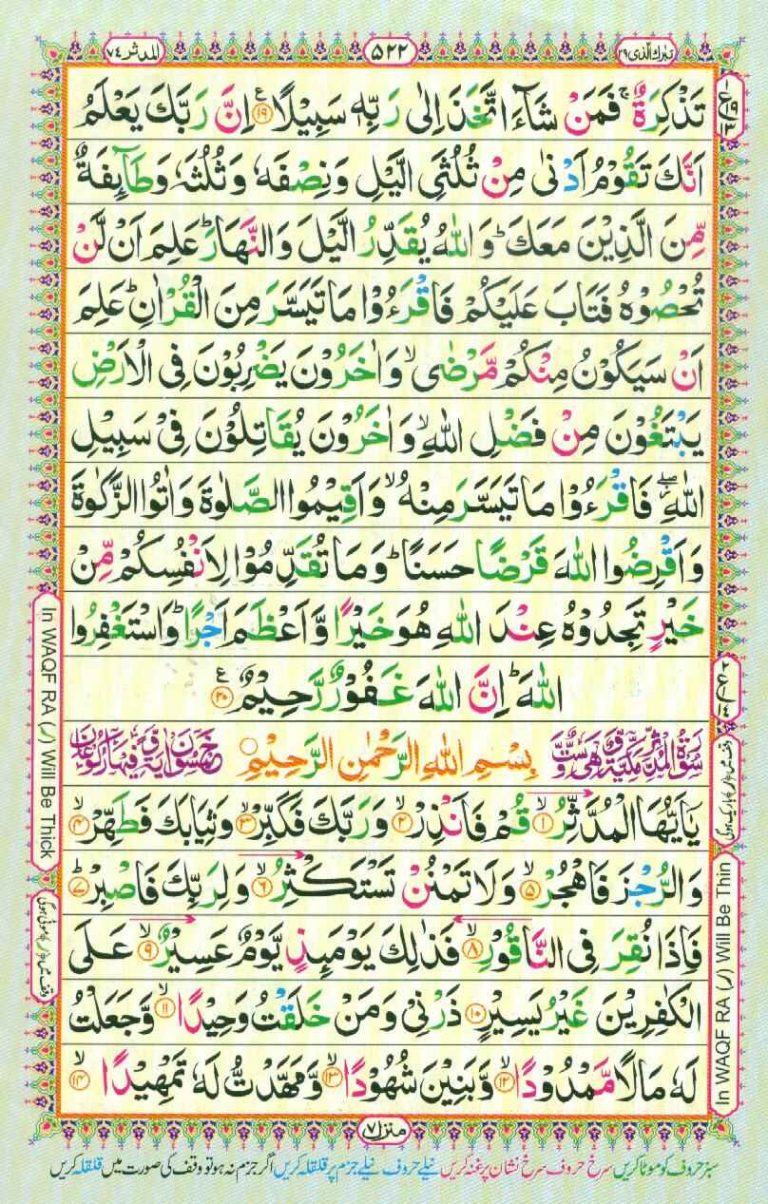 المدثر ٧٤
٥٢٢
تبرك الذی ٢٩
تَذْكِرَةٌ ۚ فَمَنْ شَآءَ اتَّخَذَ اِلٰى رَبِّهٖ سَبِيْلًا ﴿۱۹﴾ اِنَّ رَبَّكَ يَعْلَمُ
اَنَّكَ تَقُوْمُ اَدْنٰى مِنْ ثُلُثَىِ الَّيْلِ وَنِصْفَهٗ وَثُلُثَهٗ وَطَآئِفَةٌ
مِّنَ الَّذِيْنَ مَعَكَ ؕ وَاللّٰهُ يُقَدِّرُ الَّيْلَ وَالنَّهَارَ ؕ عَلِمَ اَنْ لَّنْ
تُحْصُوْهُ فَتَابَ عَلَيْكُمْ فَاقْرَءُوْا مَا تَيَسَّرَ مِنَ الْقُرْاٰنِ ؕ عَلِمَ
اَنْ سَيَكُوْنُ مِنْكُمْ مَّرْضٰى ۙ وَاٰخَرُوْنَ يَضْرِبُوْنَ فِى الْاَرْضِ
يَبْتَغُوْنَ مِنْ فَضْلِ اللّٰهِ ۙ وَاٰخَرُوْنَ يُقَاتِلُوْنَ فِىْ سَبِيْلِ
اللّٰهِ ۖ فَاقْرَءُوْا مَا تَيَسَّرَ مِنْهُ ۙ وَاَقِيْمُوا الصَّلٰوةَ وَاٰتُوا الزَّكٰوةَ
وَاَقْرِضُوا اللّٰهَ قَرْضًا حَسَنًا ؕ وَمَا تُقَدِّمُوْا لِاَنْفُسِكُمْ مِّنْ
خَيْرٍ تَجِدُوْهُ عِنْدَ اللّٰهِ هُوَ خَيْرًا وَّاَعْظَمَ اَجْرًا ؕ وَاسْتَغْفِرُوا
اللّٰهَ ؕ اِنَّ اللّٰهَ غَفُوْرٌ رَّحِيْمٌ ﴿۲۰﴾
بِسْمِ اللّٰهِ الرَّحْمٰنِ الرَّحِيْمِ
يٰۤاَيُّهَا الْمُدَّثِّرُ ۙ﴿۱﴾ قُمْ فَاَنْذِرْ ۙ﴿۲﴾ وَرَبَّكَ فَكَبِّرْ ۙ﴿۳﴾ وَثِيَابَكَ فَطَهِّرْ ۙ﴿۴﴾
وَالرُّجْزَ فَاهْجُرْ ۙ﴿۵﴾ وَلَا تَمْنُنْ تَسْتَكْثِرُ ۙ﴿۶﴾ وَلِرَبِّكَ فَاصْبِرْ ؕ﴿۷﴾
فَاِذَا نُقِرَ فِى النَّاقُوْرِ ۙ﴿۸﴾ فَذٰلِكَ يَوْمَئِذٍ يَّوْمٌ عَسِيْرٌ ۙ﴿۹﴾ عَلَى
الْكٰفِرِيْنَ غَيْرُ يَسِيْرٍ ﴿۱۰﴾ ذَرْنِىْ وَمَنْ خَلَقْتُ وَحِيْدًا ۙ﴿۱۱﴾ وَّجَعَلْتُ
لَهٗ مَالًا مَّمْدُوْدًا ۙ﴿۱۲﴾ وَّبَنِيْنَ شُهُوْدًا ۙ﴿۱۳﴾ وَّمَهَّدْتُّ لَهٗ تَمْهِيْدًا ۙ﴿۱۴﴾
In WAQF RA (ر) Will Be Thick
In WAQF RA (ر) Will Be Thin
منزل ٧
سبز حروف کو موٹا کریں سرخ حروف سرخ نشان پر غنہ کریں نیلے حروف نیلے جزم پر قلقلہ کریں اگر جزم نہ ہو تو وقف کی صورت میں قلقلہ کریں